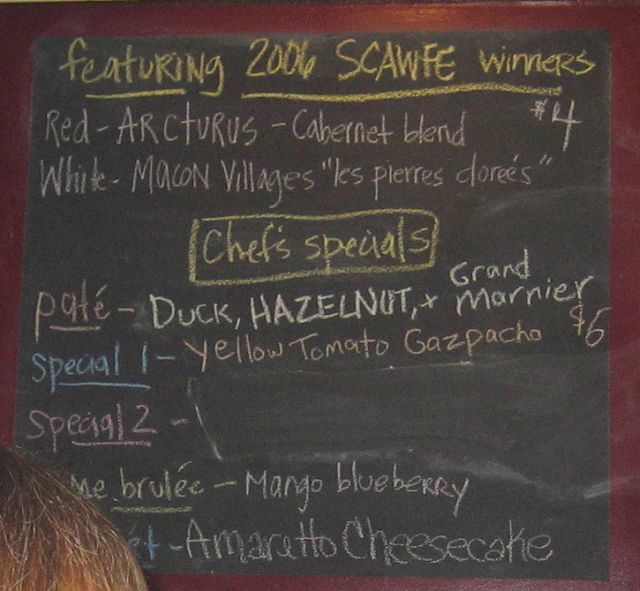 featuring 2006 SCAWFE winners
Red - ARCTURUS - Cabernet blend $4
White - MACON Villages "les pierres doreés"
Chef's specials
paté - DUCK, HAZELNUT, + Grand Marnier
special 1 - Yellow Tomato Gazpacho $6
special 2 -
brulée - Mango blueberry
- Amaretto Cheesecake